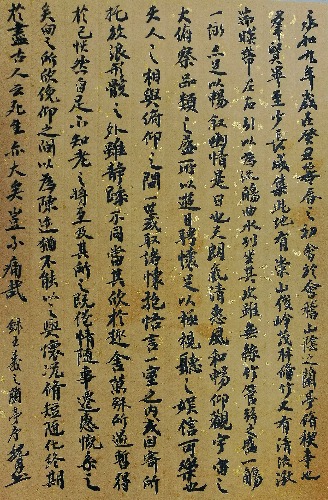 永和九年歲在癸丑暮春之初會於會稽山陰之蘭亭脩禊事也
羣賢畢至少長咸集此地有崇山峻嶺茂林脩竹又有清流激
湍暎帶左右引以為流觴曲水列坐其次雖無絲竹管絃之盛一觴
一詠亦足以暢叙幽情是日也天朗氣清惠風和暢仰觀宇宙之
大俯察品類之盛所以遊目騁懷足以極視聽之娱信可樂也
夫人之相與俯仰之間一世或取諸懷抱悟言一室之內或因寄所
托放浪形骸之外雖靜躁不同當其欣於趣舍萬殊所遇暫得
於己怏然自足不知老之將至及其所之既倦情隨事遷感慨係之
矣向之所欣俛仰之間以為陳迹猶不能以之興懷況脩短隨化終期
於盡古人云死生亦大矣豈不痛哉
錄王羲之蘭亭序 魏